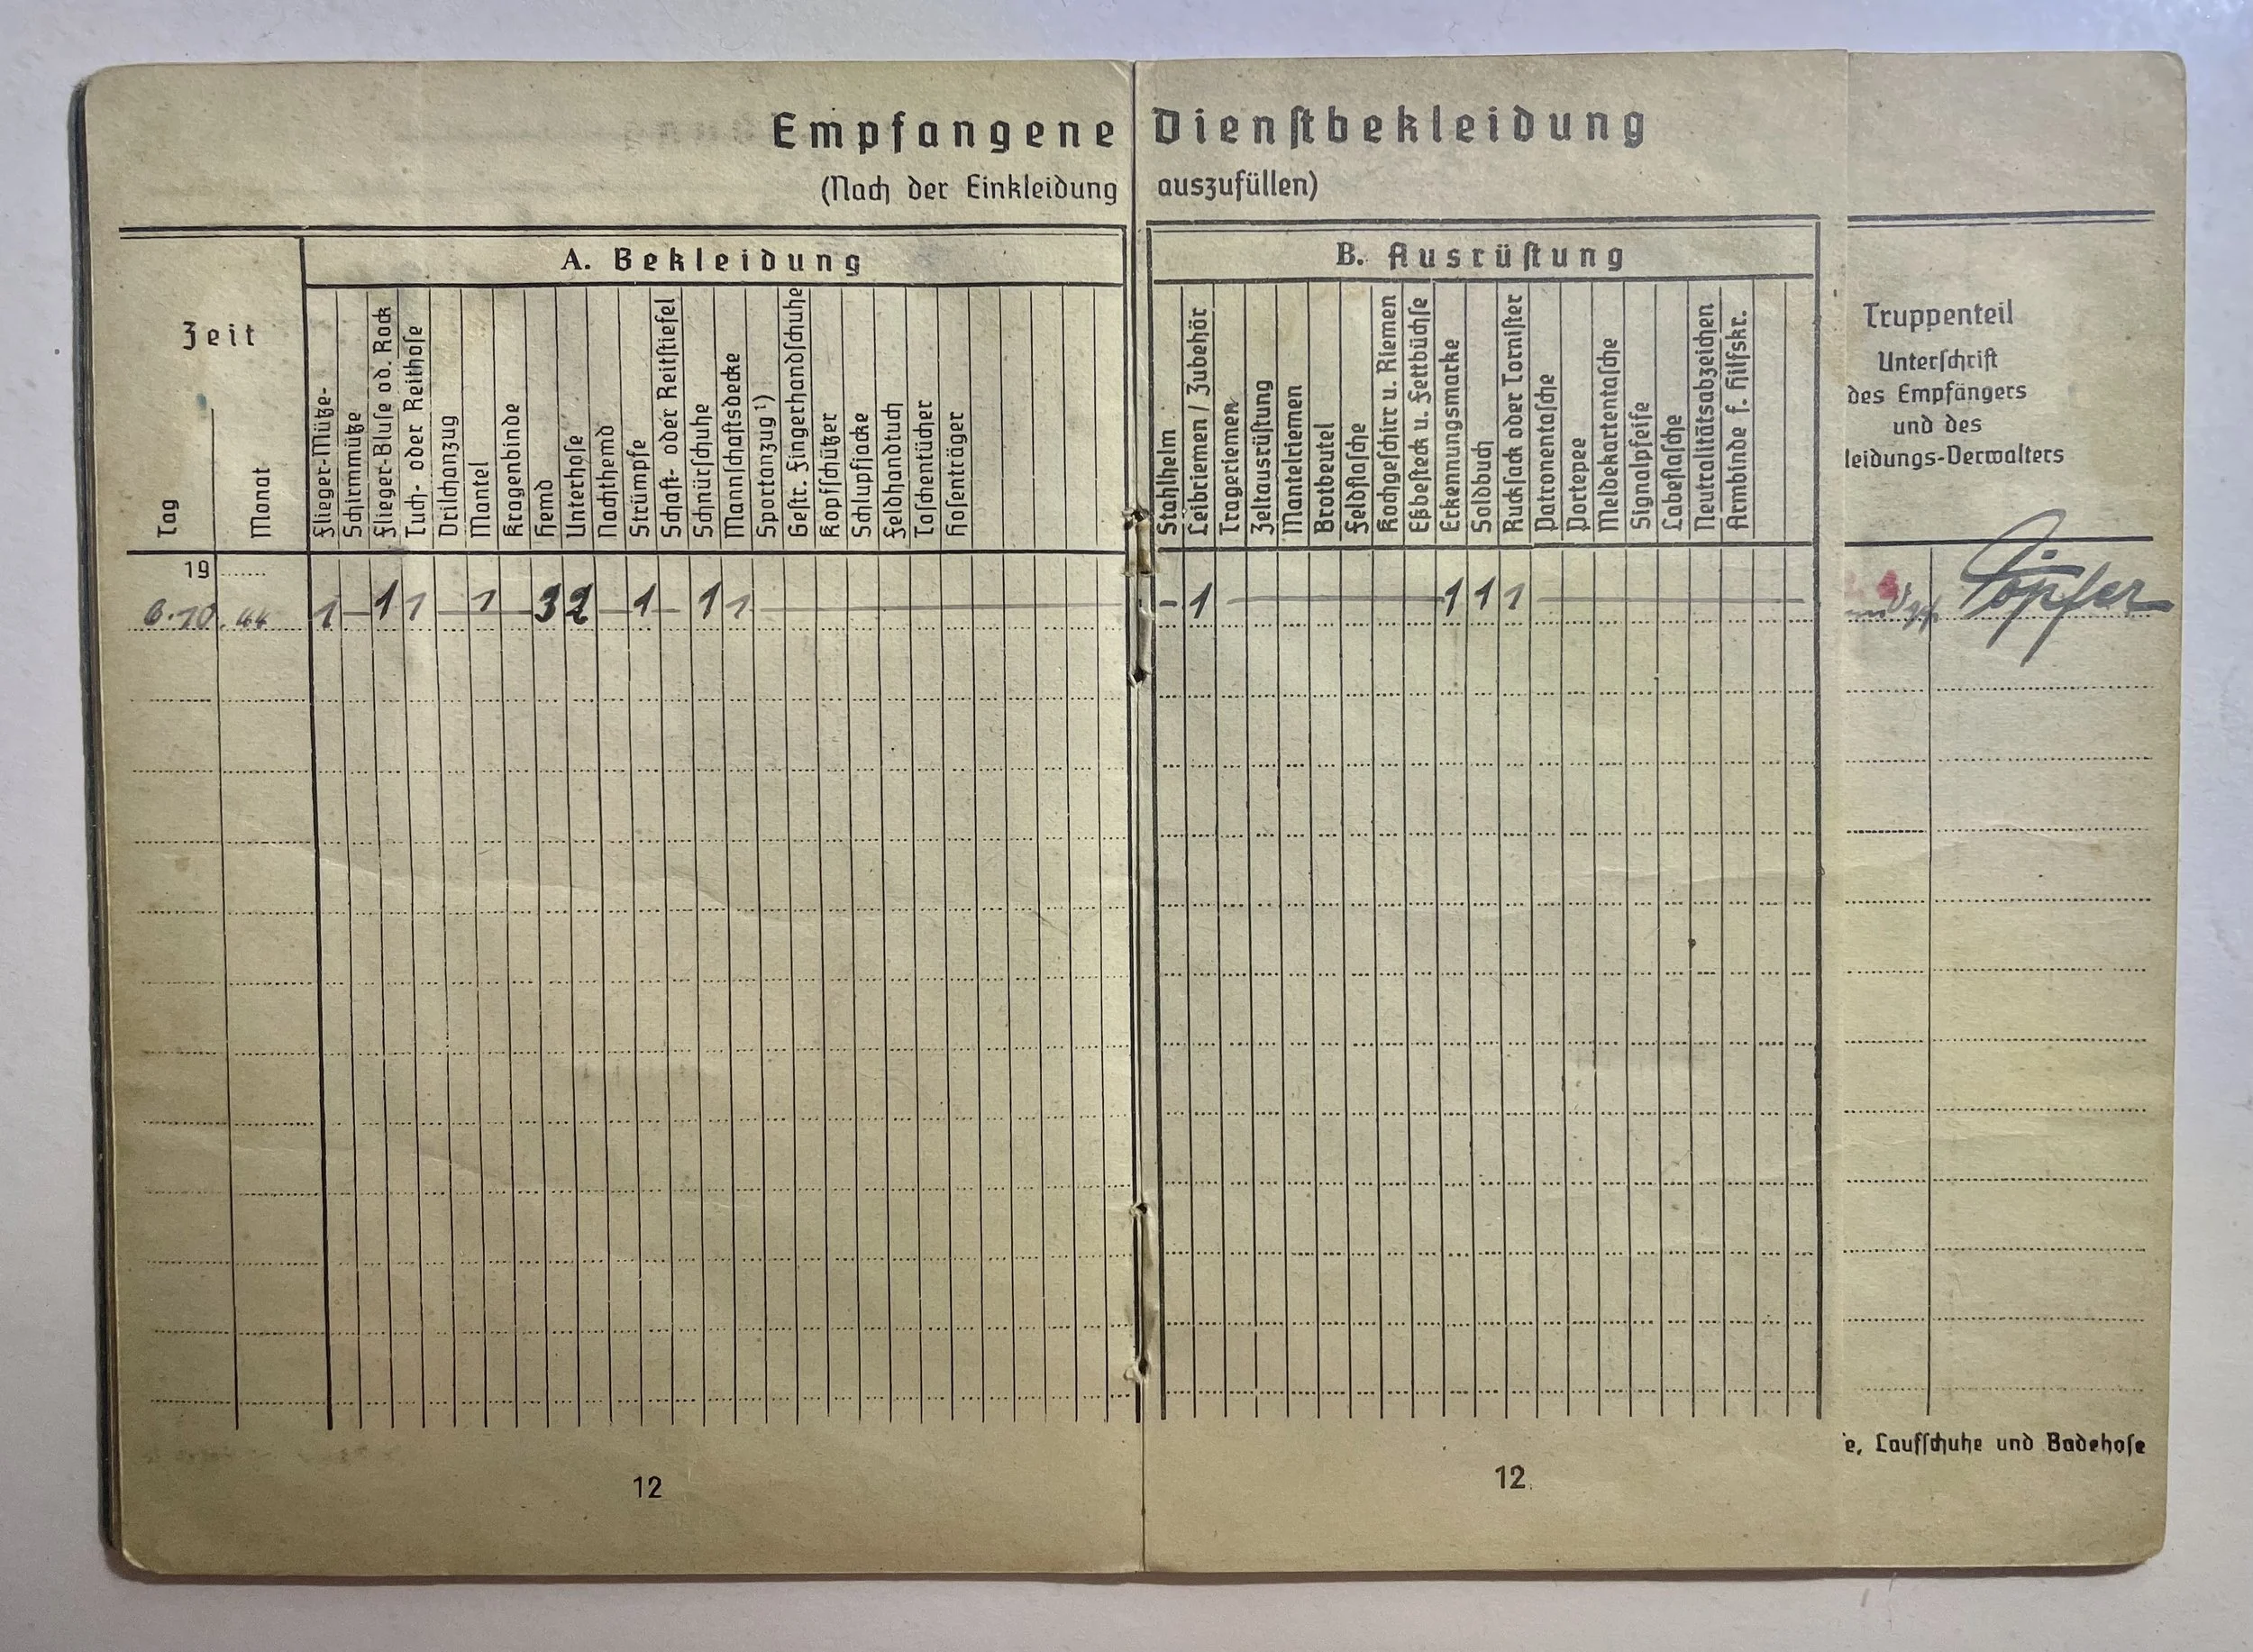 Empfangene Dienstbekleidung
(Nach der Einkleidung auszufüllen)
Zeit
Tag
Monat
A. Bekleidung
Flieger-Mütze
Schirmmütze
Flieger-Bluse od. Rock
Tuch- oder Reithose
Drilchanzug
Mantel
Kragenbinde
Hemd
Unterhose
Nachthemd
Strümpfe
Schaft- oder Reitstiefel
Schnürschuhe
Mannschaftsdecke
Sportanzug ¹)
Gestr. Fingerhandschuhe
Kopfschützer
Schlupfjacke
Feldhandtuch
Taschentücher
Hosenträger
B. Ausrüstung
Stahlhelm
Leibriemen / Zubehör
Trageriemen
Zeltausrüstung
Mantelriemen
Brotbeutel
Feldflasche
Kochgeschirr u. Riemen
Eßbesteck u. Fettbüchse
Erkennungsmarke
Soldbuch
Rucksack oder Tornister
Patronentasche
Portepee
Meldekartentasche
Signalpfeife
Labeflasche
Neutralitätsabzeichen
Armbinde f. Hilfskr.
Truppenteil
Unterschrift
des Empfängers
und des
leidungs-Verwalters
19
6.10.44 1 – 1 1 – 1 – 3 2 – 1 – 1 1 – – 1 – 1 1 1 – Töpfer
e, Laufschuhe und Badehose
12
12